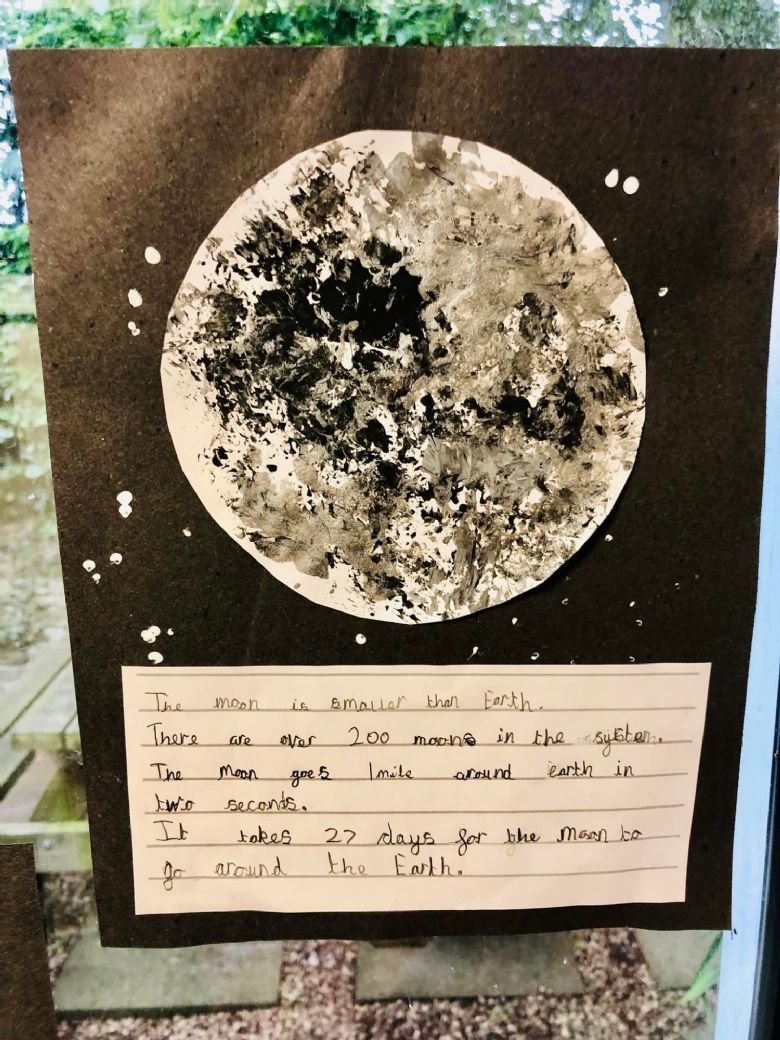 The moon is smaller than Earth.
There are over 200 moons in the system.
The Moon goes 1 mile around earth in
two seconds.
It takes 27 days for the Moon to
go around the Earth.